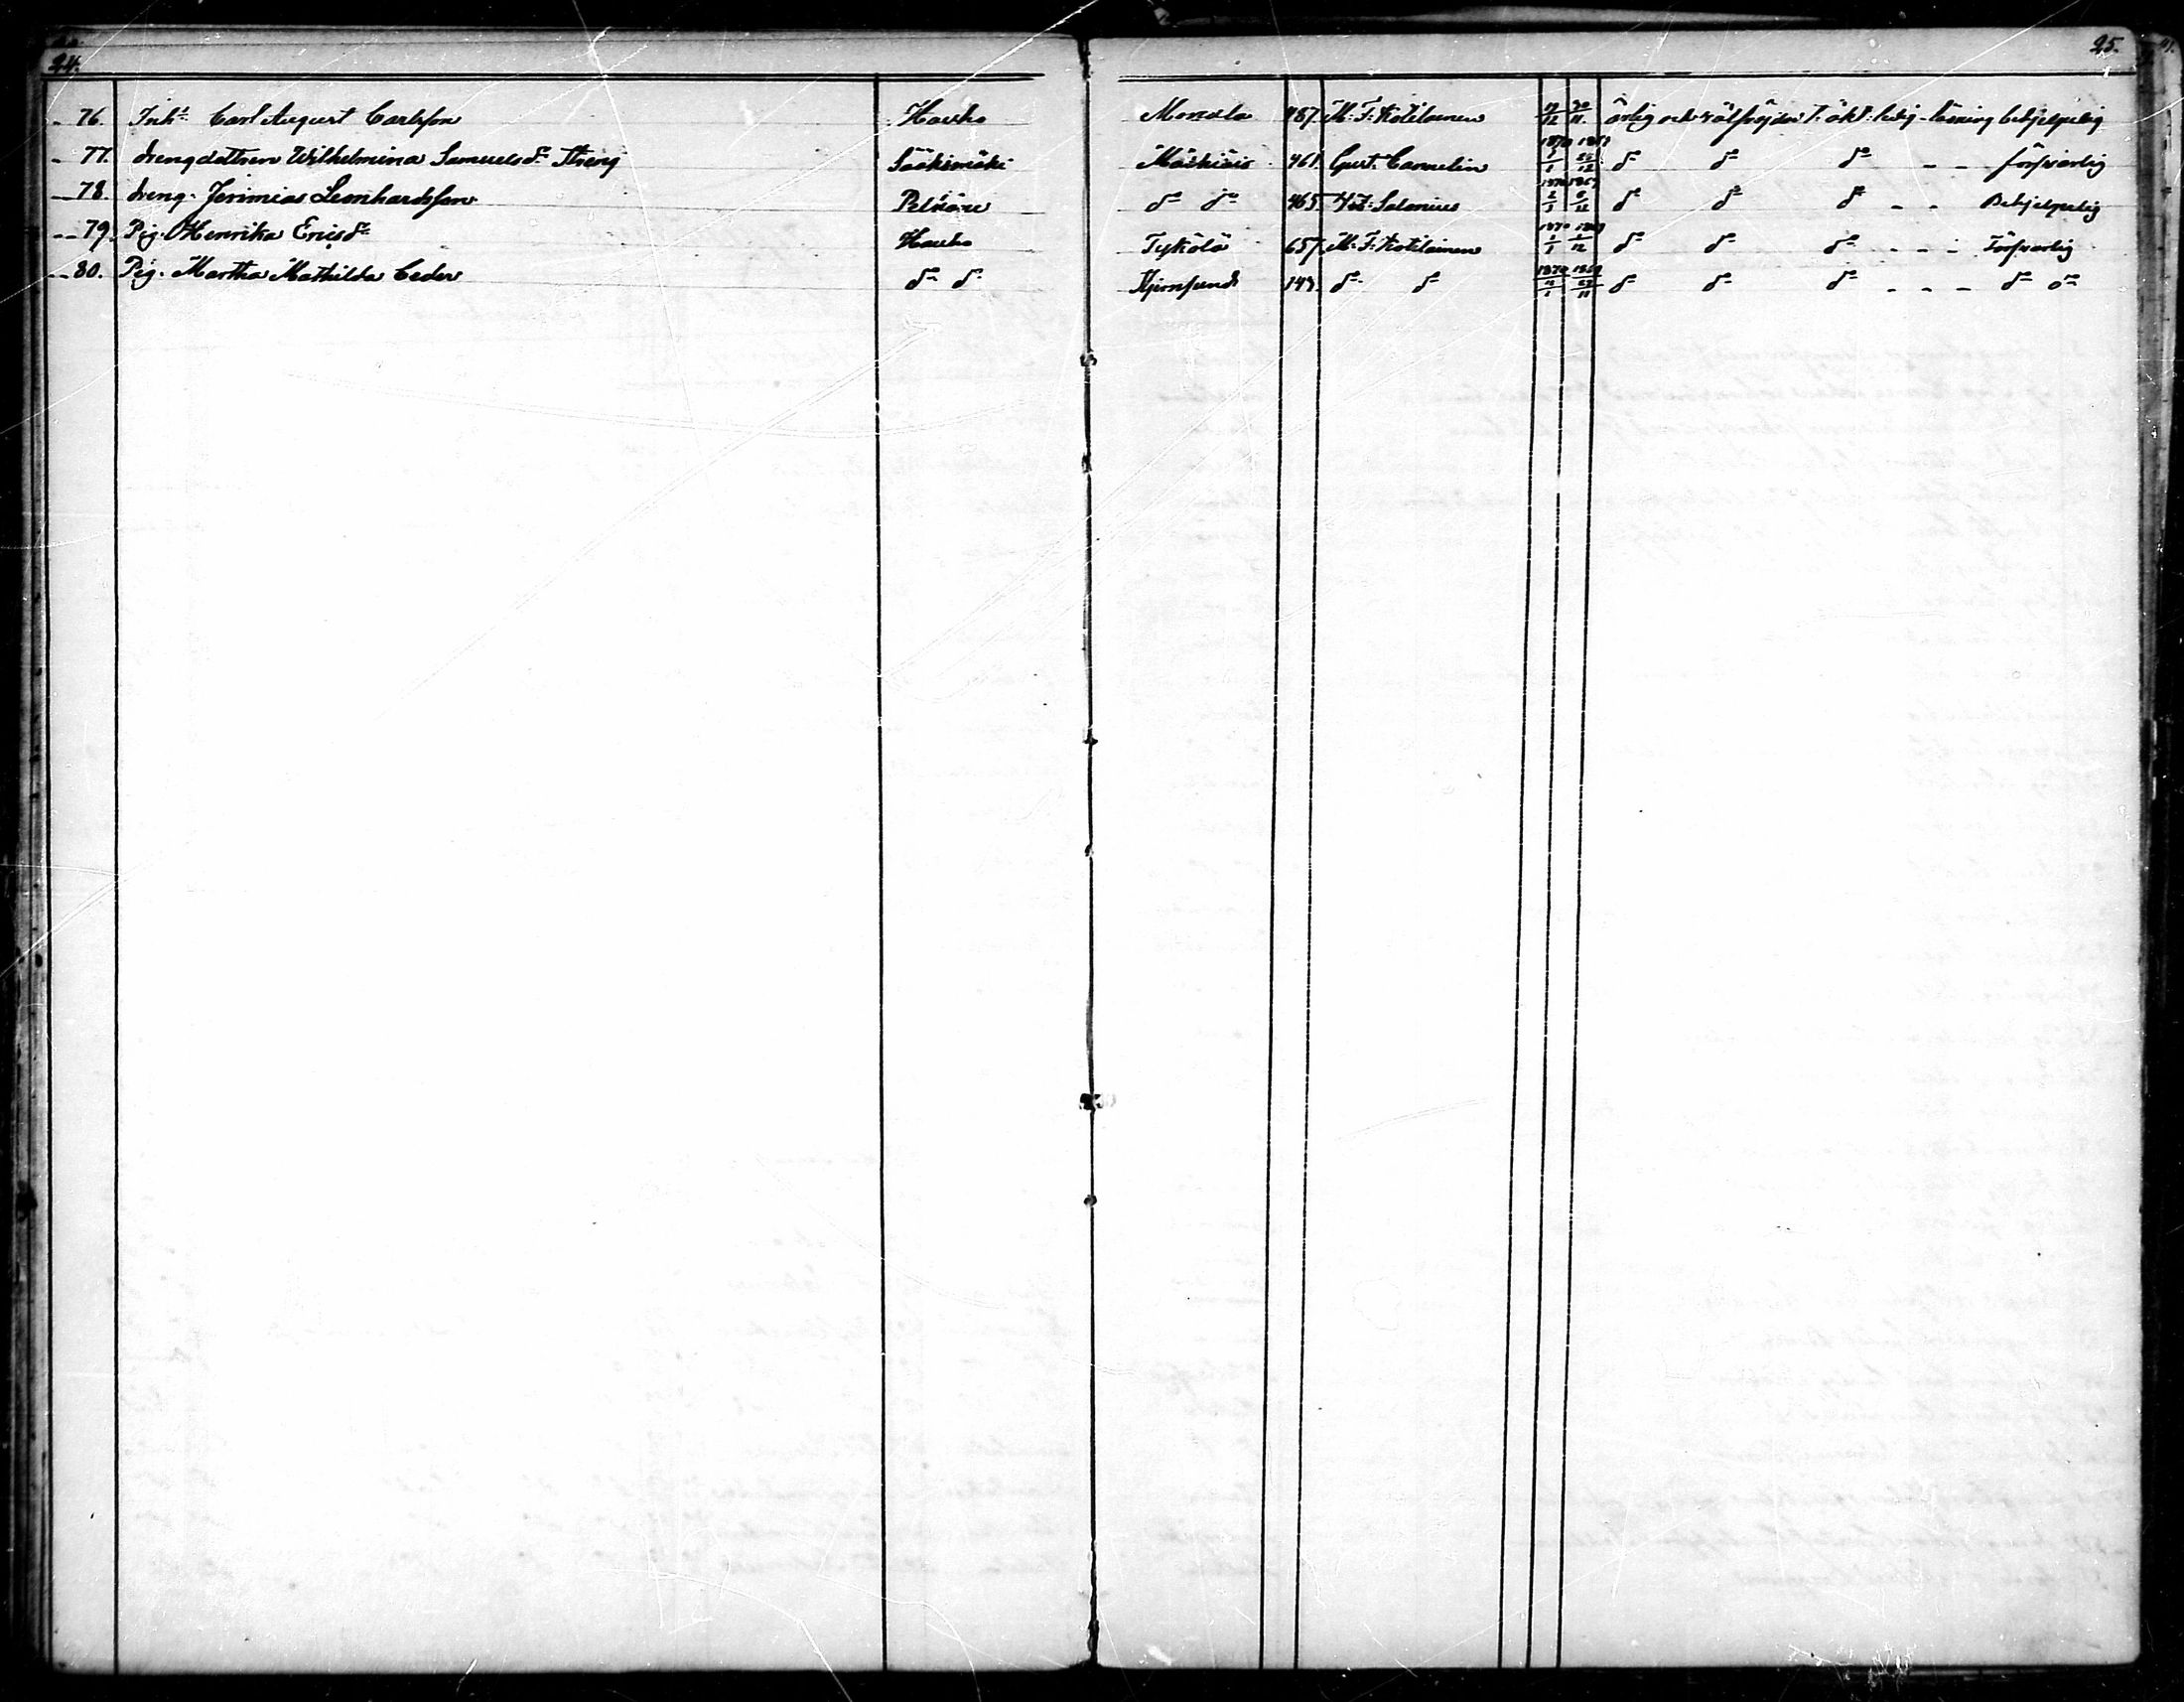 24.
25.
76. Inh: Carl August Carlsson Hauho Monala 487. M. F. Kotilainen 17/12 30/11. ärlig och välfrejdad t. äkt: ledig - läsning behjelpelig
77. drengdottren Wilhelmina Samuelsdr Streng Sääksmäki 461. Gust. Carnelin 1870 1869 dr dr dr - - försvarlig
78. dreng. Jerimias Leonhardsson Pelkäne dr dr 465. Salonius 1870 1869 dr dr dr - - Behjelpelig
79. Pig. Henrika Ericsdr Hauho Tykölä 657. M. F. Kotilainen 1870 1869 1/12 dr dr dr - - - Försvarlig
80. Pig. Martha Mathilda Ceder dr dr 149. dr dr 1870 1869 dr dr dr - - - dr dr